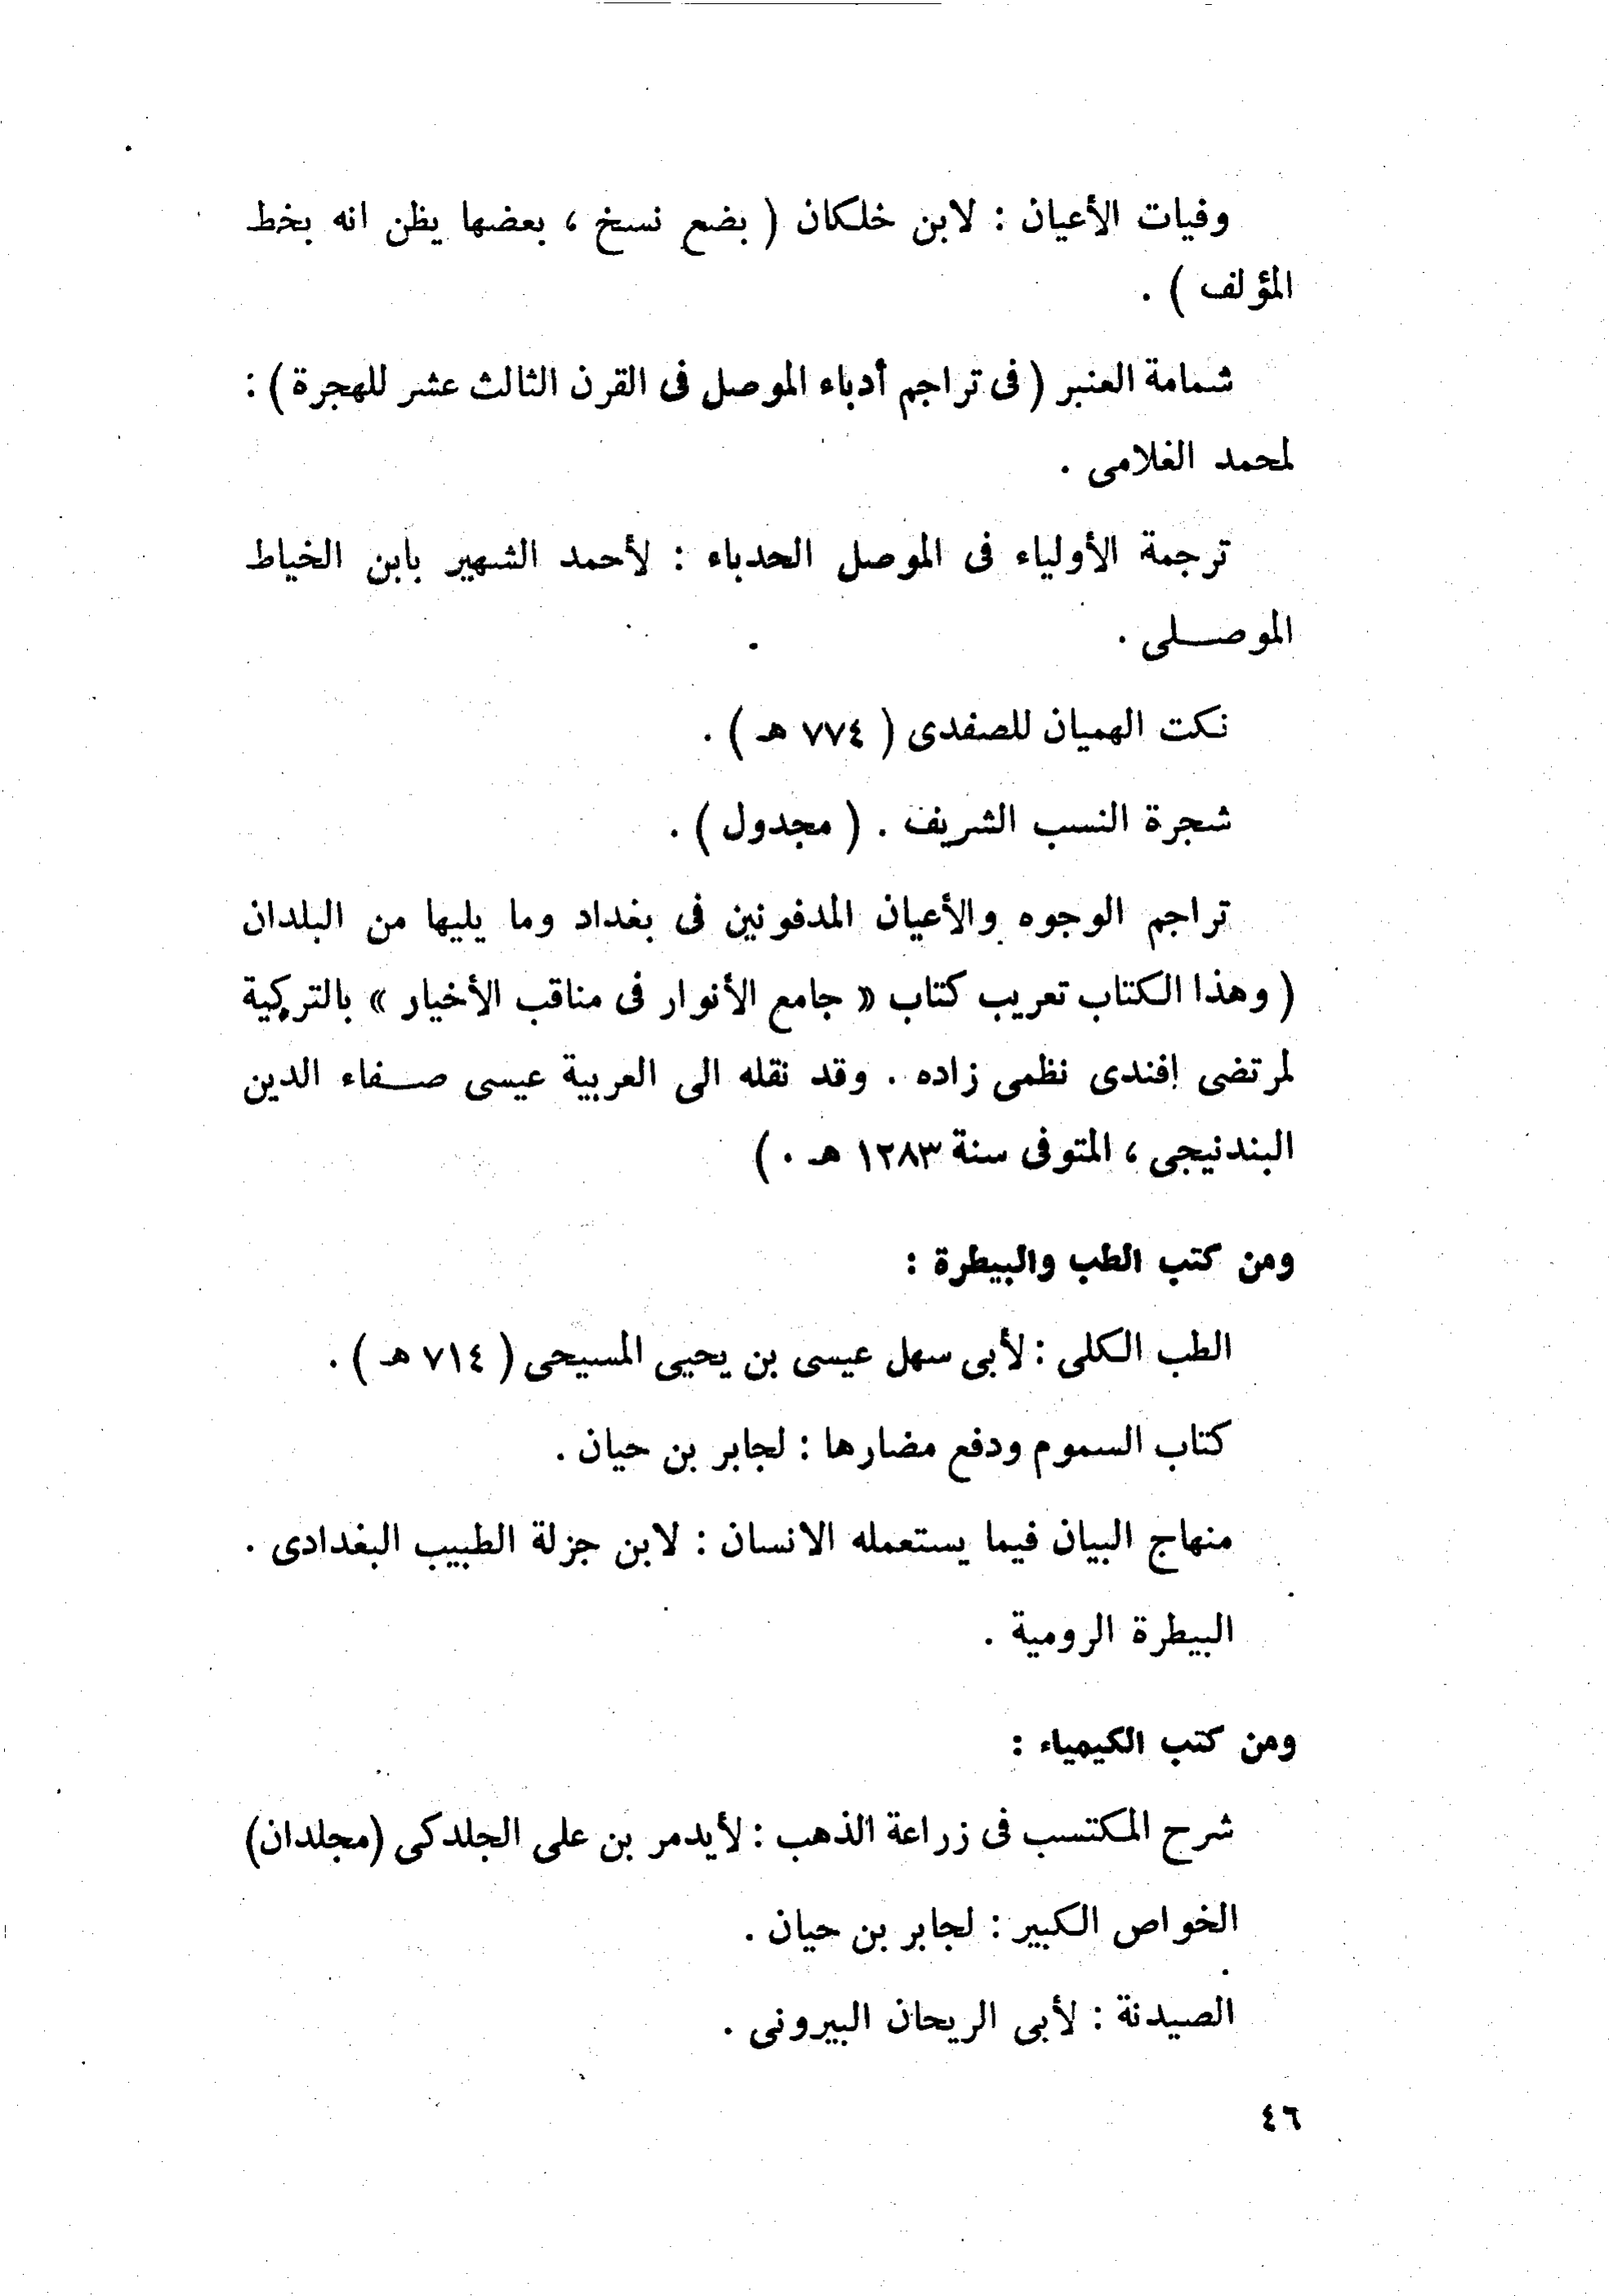 وفيات الأعيان : لابن خلكان ( بضع نسخ ، بعضها يظن انه بخط
المؤلف ) .
شمامة العنبر ( فى تراجم أدباء الموصل فى القرن الثالث عشر للهجرة ) :
لمحمد الغلامى .
ترجمة الأولياء فى الموصل الحدباء : لأحمد الشهير بابن الخياط
الموصلى .
نكت الهميان للصفدى ( ٧٧٤ هـ ) .
شجرة النسب الشريف . ( مجدول ) .
تراجم الوجوه والأعيان المدفونين فى بغداد وما يليها من البلدان
( وهذا الكتاب تعريب كتاب « جامع الأنوار فى مناقب الأخيار » بالتركية
لمرتضى إفندى نظمى زاده . وقد نقله الى العربية عيسى صفاء الدين
البندنيجى ، المتوفى سنة ١٢٨٣ هـ . )
ومن كتب الطب والبيطرة :
الطب الكلى : لأبى سهل عيسى بن يحيى المسيحى ( ٧١٤ هـ ) .
كتاب السموم ودفع مضارها : لجابر بن حيان .
منهاج البيان فيما يستعمله الانسان : لابن جزلة الطبيب البغدادى .
البيطرة الرومية .
ومن كتب الكيمياء :
شرح المكتسب فى زراعة الذهب : لأيدمر بن على الجلدكى (مجلدان)
الخواص الكبير : لجابر بن حيان .
الصيدنة : لأبى الريحان البيرونى .
٤٦